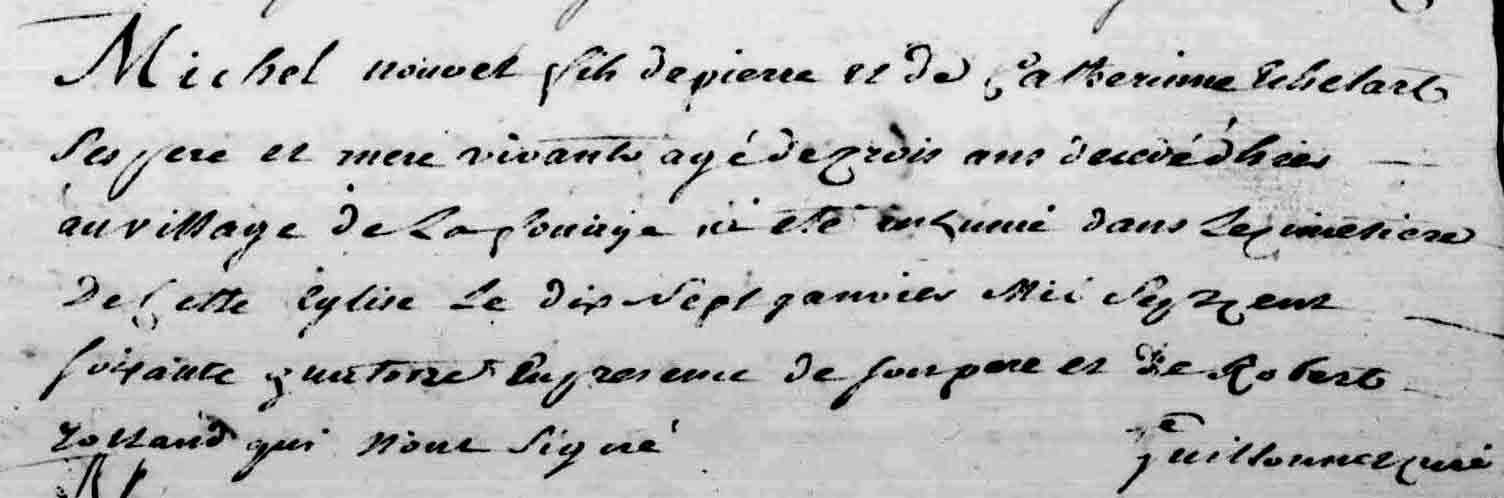 Michel nouvet fils de pierre et de Catherinne Echelart
Ses pere et mere vivants agé de trois ans decedé d'hier
au village de La a eté inhumé dans Le cimetiere
De Cette Eglise Le dix Sept janvier Mil Sept Cent
soixante quatorze En presence de son pere et de Robert
rolland qui n'ont Signé
Guillonnet curé